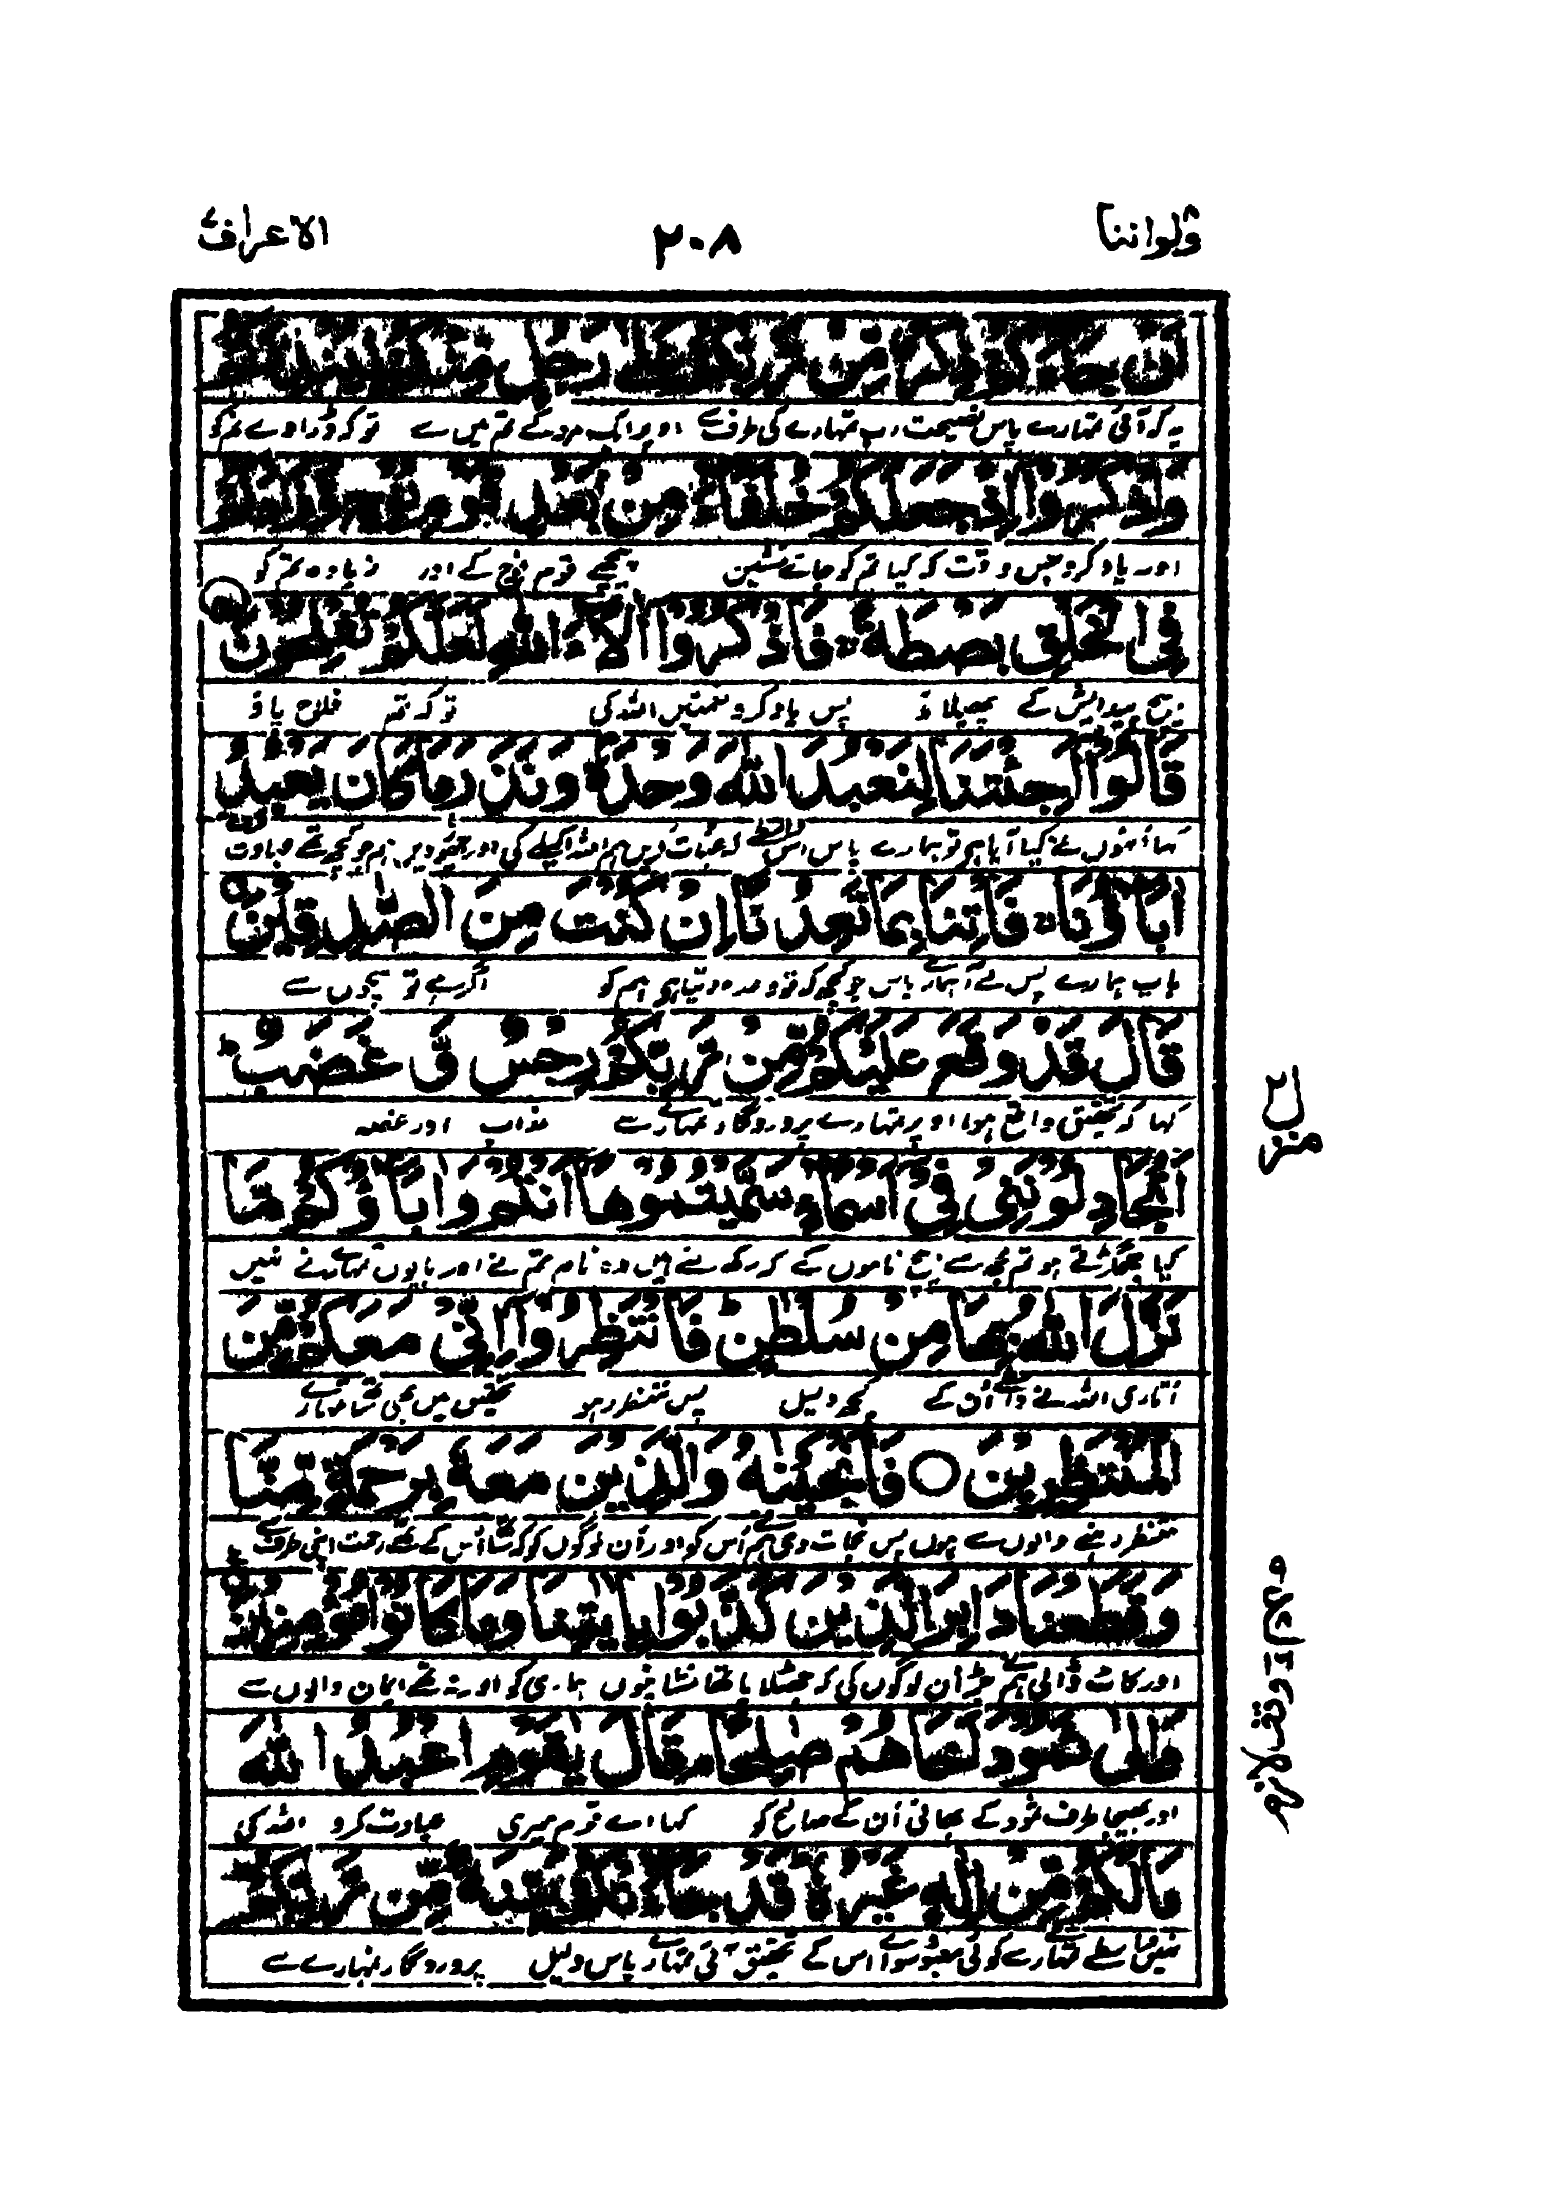 ولواننا ٢٠٨ الاعراف
أن جاءكم ذكر من ربكم على رجل منكم لينذركم
یہ کہ آئی تمہارے پاس نصیحت رب تمہارے کی طرف سے اوپر ایک مرد کے تم میں سے تو کہ ڈراوے تم کو
واذكروا إذ جعلكم خلفاء من بعد قوم نوح وزادكم
اور یاد کرو جس وقت کہ کیا تم کو جانشین پیچھے قوم نوح کے اور زیادہ تم کو
في الخلق بصطة فاذكروا آلاء الله لعلكم تفلحون
بیچ پیدائش کے پھیلاؤ پس یاد کرو نعمتیں اللہ کی تو کہ تم فلاح پاؤ
قالوا أجئتنا لنعبد الله وحده ونذر ما كان يعبد
کہا اُنہوں نے کیا آیا ہے تو ہمارے پاس اس واسطے کہ عبادت کریں ہم اللہ اکیلے کی اور چھوڑ دیں ہم جو کچھ تھے عبادت
آباؤنا فأتنا بما تعدنا إن كنت من الصدقين
باپ ہمارے پس لے آ ہمارے پاس جو کچھ کہ تو وعدہ دیتا ہے ہم کو اگر ہے تو سچوں سے
قال قد وقع عليكم من ربكم رجس و غضب ط
کہا کہ تحقیق واقع ہوا اوپر تمہارے پروردگار تمہارے سے عذاب اور غصہ
أتجادلونني في أسماء سميتموها أنتم و آباؤكم ما
کیا جھگڑتے ہو تم مجھ سے بیچ ناموں کے کہ رکھ لئے ہیں وہ نام تم نے اور باپوں تمہارے نے نہیں
نزل الله بها من سلطن فانتظروا إني معكم من
اُتاری اللہ نے واسطے اُن کے کچھ دلیل پس منتظر رہو تحقیق میں بھی ساتھ تمہارے
المنتظرين ○ فأنجينه والذين معه برحمة منا
منتظر رہنے والوں سے ہوں پس نجات دی ہم نے اُس کو اور اُن لوگوں کو کہ ساتھ اُس کے تھے رحمت اپنی طرف سے
وقطعنا دابر الذين كذبوا بآيتنا وما كانوا مؤمنين
اور کاٹ ڈالی ہم نے جڑ اُن لوگوں کی کہ جھٹلایا تھا نشانیوں ہماری کو اور نہ تھے ایمان والوں سے
وإلى ثمود أخاهم صلحا قال يقوم اعبدوا الله
اور بھیجا طرف ثمود کے بھائی اُن کے صالح کو کہا اے قوم میری عبادت کرو اللہ کی
ما لكم من إله غيره قد جاءتكم بينة من ربكم
نہیں واسطے تمہارے کوئی معبود سوائے اس کے تحقیق آئی تمہارے پاس دلیل پروردگار تمہارے سے
منزل ٢